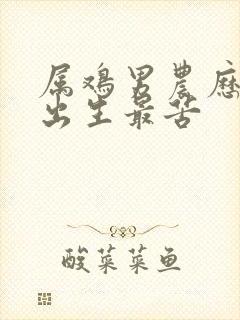 属鸡男農历
出生最苦
酸菜菜鱼